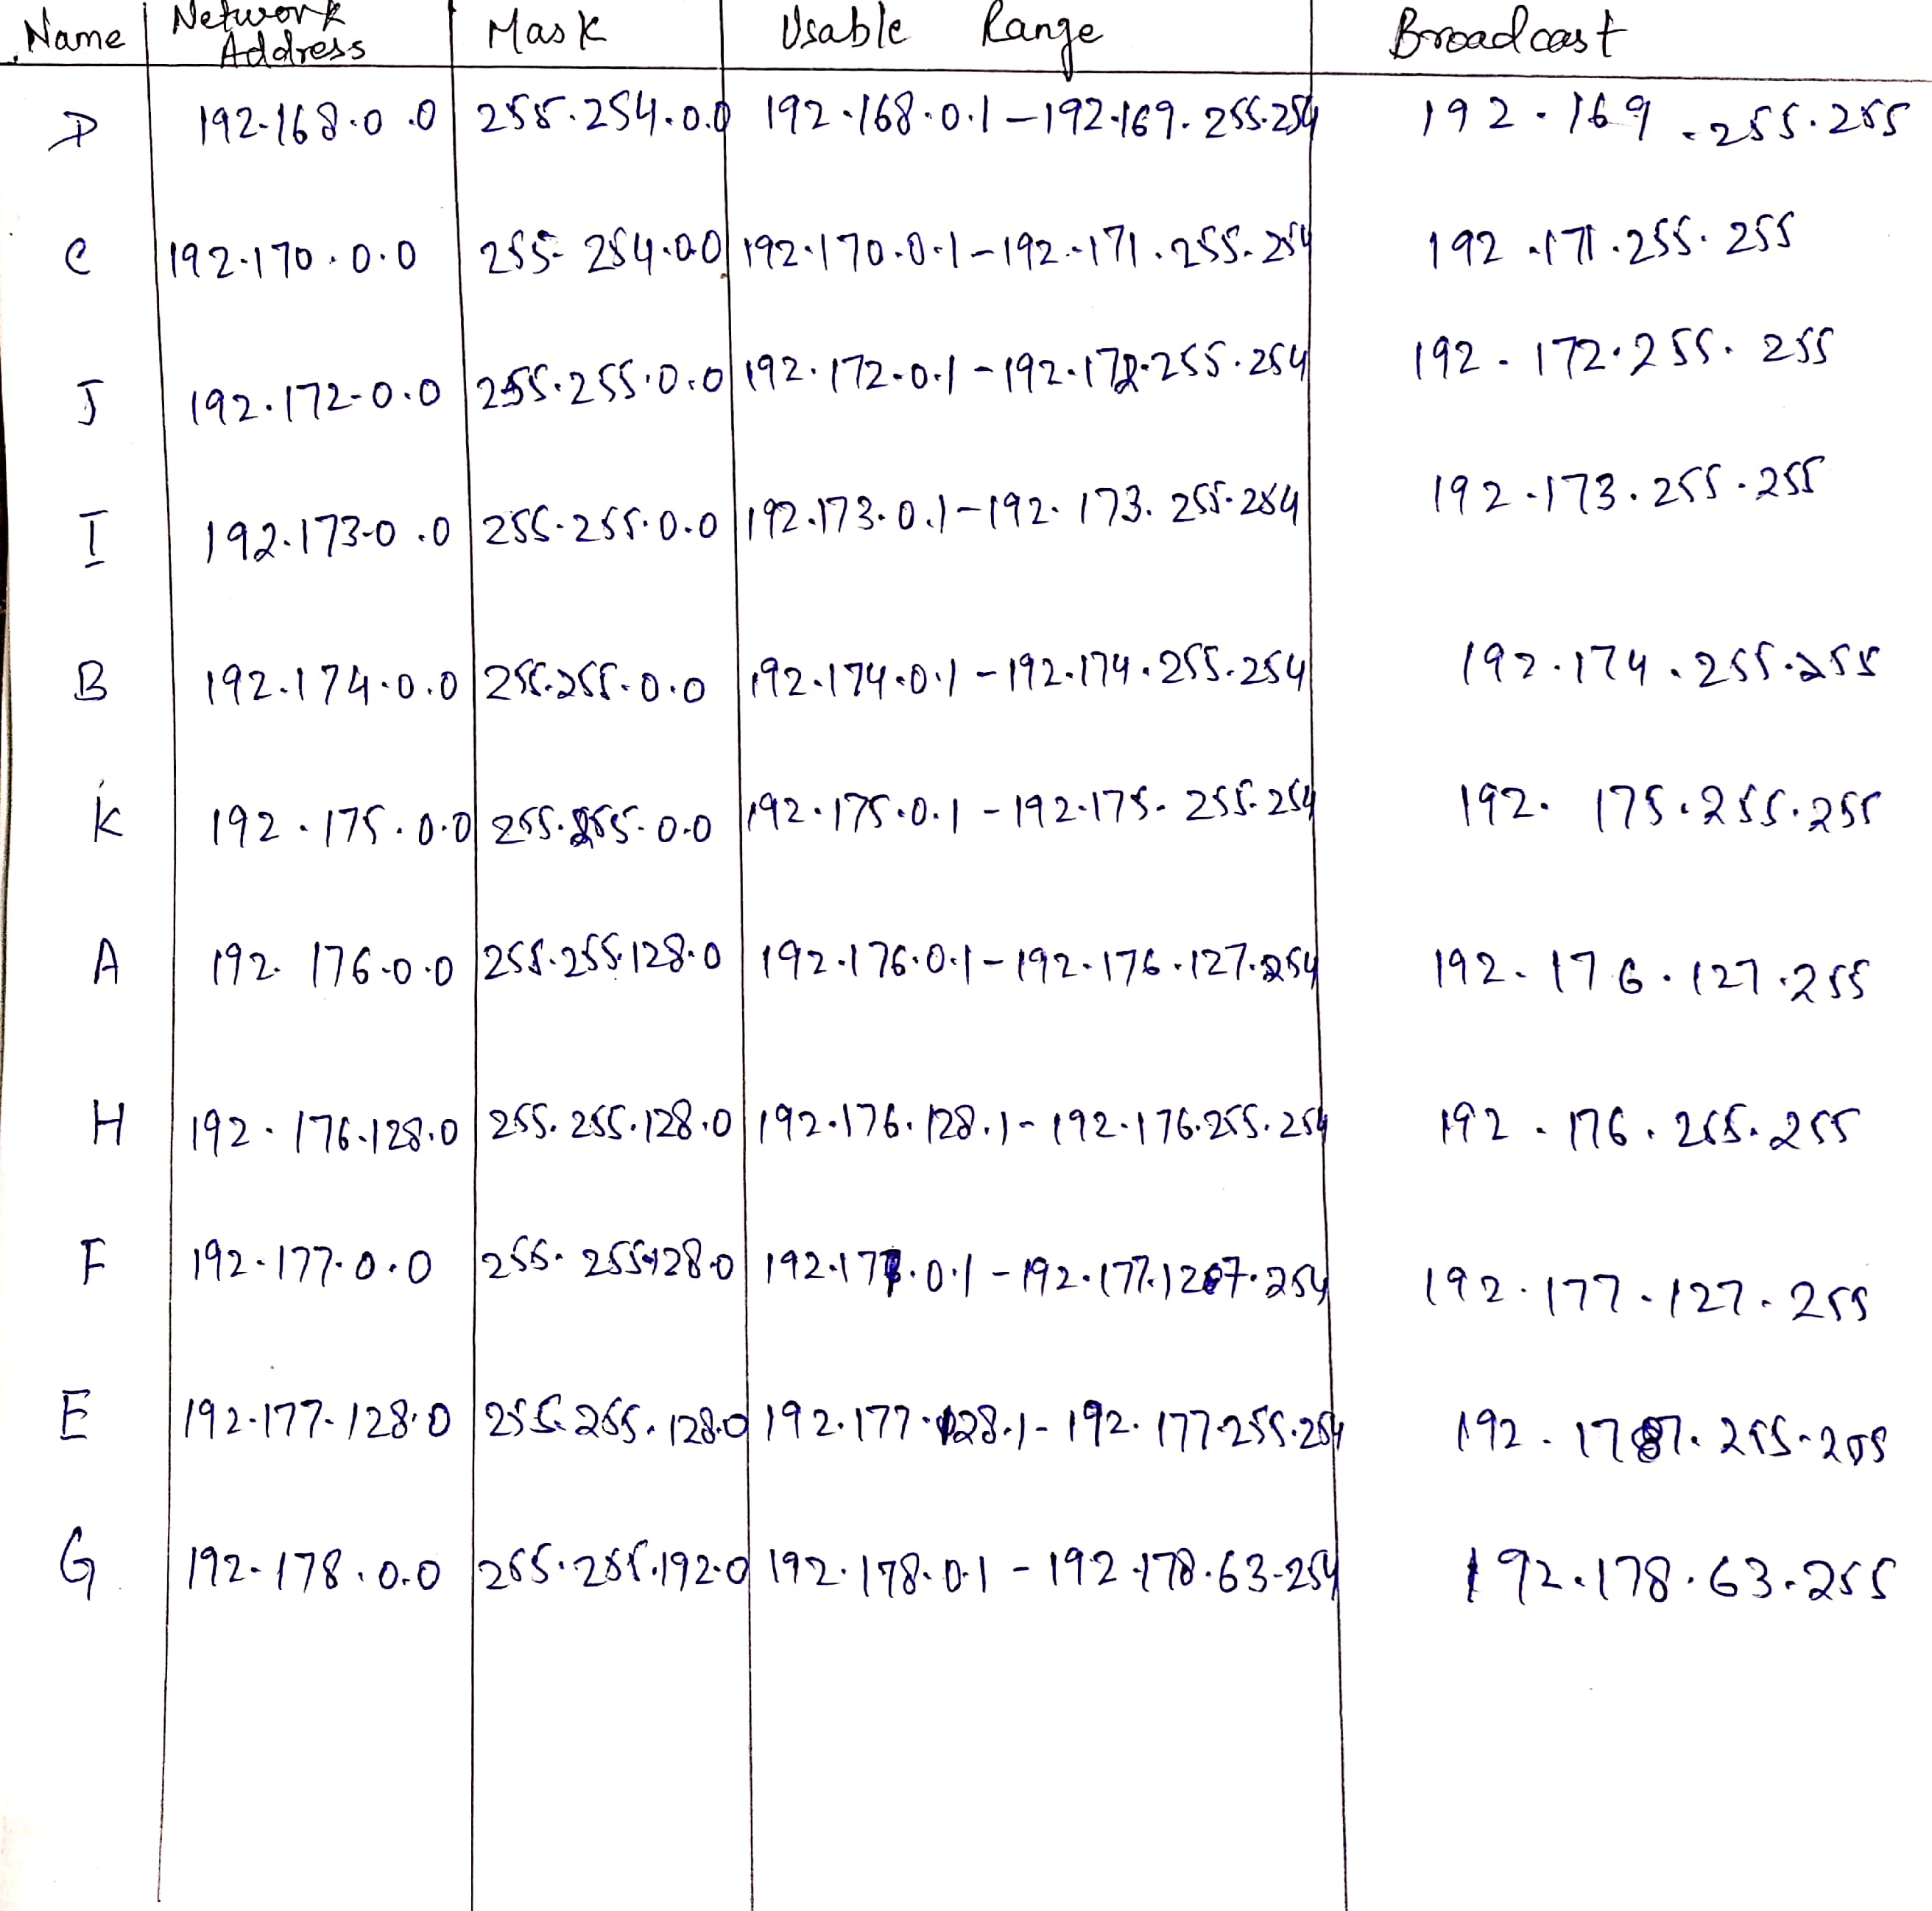 Name Network Address Mask Usable Range Broadcast
D 192.168.0.0 255.254.0.0 192.168.0.1 - 192.169.255.254 192.169.255.255
C 192.170.0.0 255.254.0.0 192.170.0.1 - 192.171.255.254 192.171.255.255
J 192.172.0.0 255.255.0.0 192.172.0.1 - 192.172.255.254 192.172.255.255
I 192.173.0.0 255.255.0.0 192.173.0.1 - 192.173.255.254 192.173.255.255
B 192.174.0.0 255.255.0.0 192.174.0.1 - 192.174.255.254 192.174.255.255
K 192.175.0.0 255.255.0.0 192.175.0.1 - 192.175.255.254 192.175.255.255
A 192.176.0.0 255.255.128.0 192.176.0.1 - 192.176.127.254 192.176.127.255
H 192.176.128.0 255.255.128.0 192.176.128.1 - 192.176.255.254 192.176.255.255
F 192.177.0.0 255.255.128.0 192.177.0.1 - 192.177.127.254 192.177.127.255
E 192.177.128.0 255.255.128.0 192.177.128.1 - 192.177.255.254 192.177.255.255
G 192.178.0.0 255.255.192.0 192.178.0.1 - 192.178.63.254 192.178.63.255